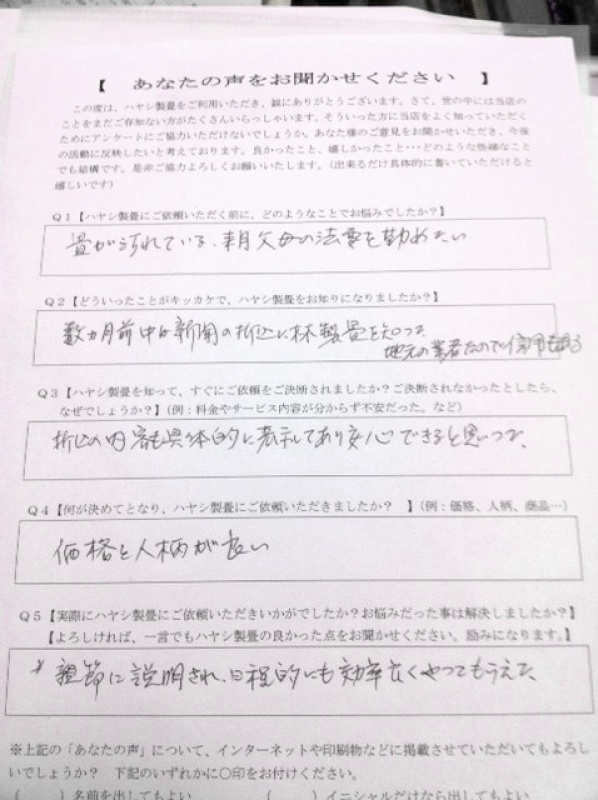 【 あなたの声をお聞かせください 】
この度は、ハヤシ製畳をご利用いただき、誠にありがとうございます。さて、世の中には当店の
ことをまだご存知ない方がたくさんいらっしゃいます。そういった方に当店をよく知っていただく
ためにアンケートにご協力いただけないでしょうか。あなた様のご意見をお聞かせいただき、今後
の活動に反映したいと考えております。良かったこと、嬉しかったこと・・・どのような些細なこと
でも結構です。是非ご協力よろしくお願いいたします。(出来るだけ具体的に書いていただけると
嬉しいです)
Q1【ハヤシ製畳にご依頼いただく前に、どのようなことでお悩みでしたか?】
畳が汚れている、来月父母の法要を勤めたい
Q2【どういったことがキッカケで、ハヤシ製畳をお知りになりましたか?】
数カ月前中日新聞の折込に林製畳を知った
地元の業者なので信用出来る
Q3【ハヤシ製畳を知って、すぐにご依頼をご決断されましたか?ご決断されなかったとしたら、
なぜでしょうか?】(例:料金やサービス内容が分からず不安だった。など)
折込の内容も具体的に表示してあり安心できると思った、
Q4【何が決めてとなり、ハヤシ製畳にご依頼いただきましたか? 】(例:価格、人柄、商品…)
価格と人柄が良い
Q5【実際にハヤシ製畳にご依頼いただきいかがでしたか?お悩みだった事は解決しましたか?】
【よろしければ、一言でもハヤシ製畳の良かった点をお聞かせください。励みになります。】
親節に説明され、日程的にも効率良くやってもらえた
※上記の「あなたの声」について、インターネットや印刷物などに掲載させていただいてもよろし
いでしょうか? 下記のいずれかに○印をお付けください。
( )名前を出してもよい ( )イニシャルだけなら出してもよい